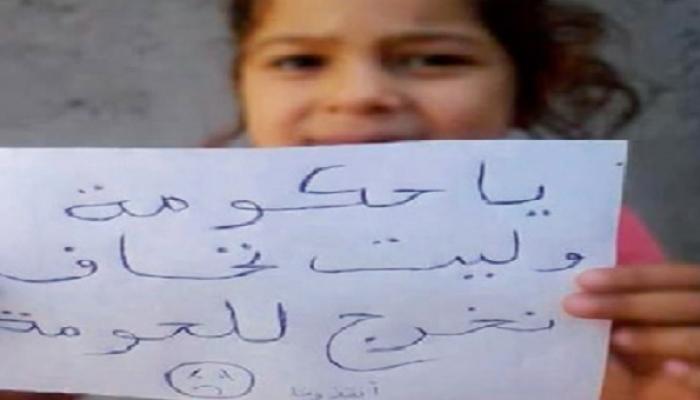 يا حكومة
وليت نخاف
نخرج للحومة
أنقذونا